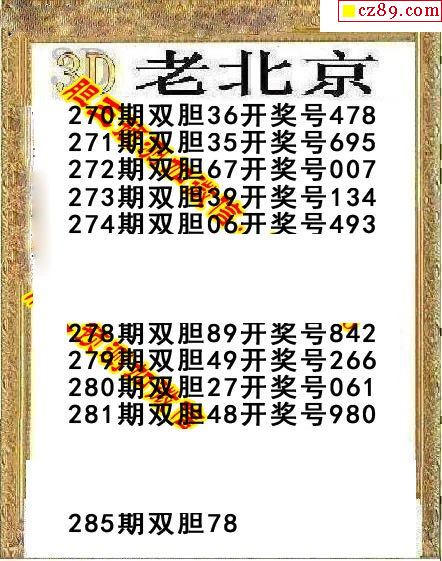 cz89.com
3D 老北京
270期双胆36开奖号478
271期双胆35开奖号695
272期双胆67开奖号007
273期双胆39开奖号134
274期双胆06开奖号493
278期双胆89开奖号842
279期双胆49开奖号266
280期双胆27开奖号061
281期双胆48开奖号980
285期双胆78